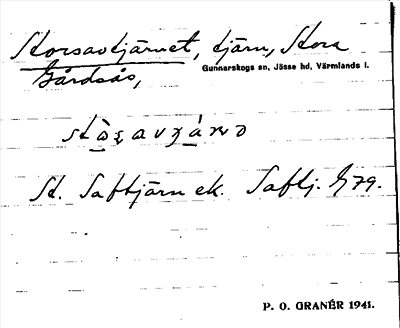 Storsavtjärnet, tjärn, Stora
Gårdsås,
Gunnarskogs sn, Jösse hd, Värmlands l.
St. Saftjärn ek. Saftj. G 79.
P. O. GRANÉR 1941.